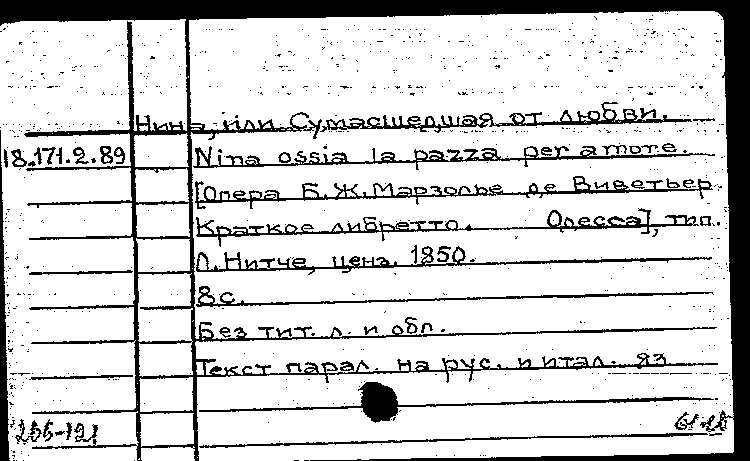 Нина, или Сумасшедшая от любви.
18.171.2.89 Nina ossia la pazza per amore.
[Опера Б.Ж.Марзолье де Виветьер
Краткое либретто. Одесса], тип.
Л.Нитче, ценз. 1850.
8 с.
Без тит. л. и обл.
Текст парал. на рус. и итал. яз